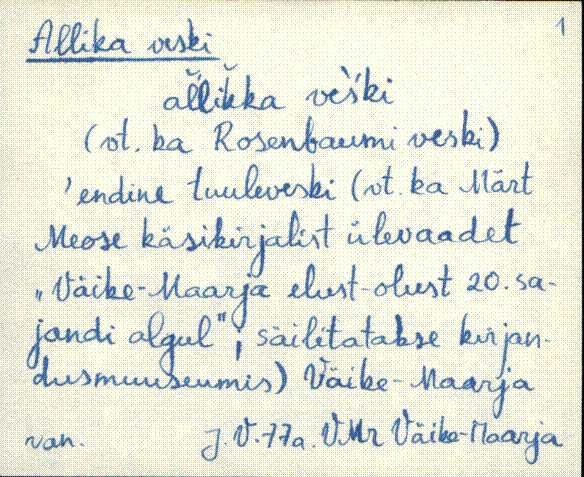 1
Allika veski
al̆likka veśki
(vt. ka Rosenbaumi veski)
'endine tuuleveski (vt. ka Märt
Meose käsikirjalist ülevaadet
„Väike-Maarja elust-olust 20. sa-
jandi algul", säilitatakse kirjan-
dusmuuseumis) Väike-Maarja
van. J. V. 77a. VMr Väike-Maarja